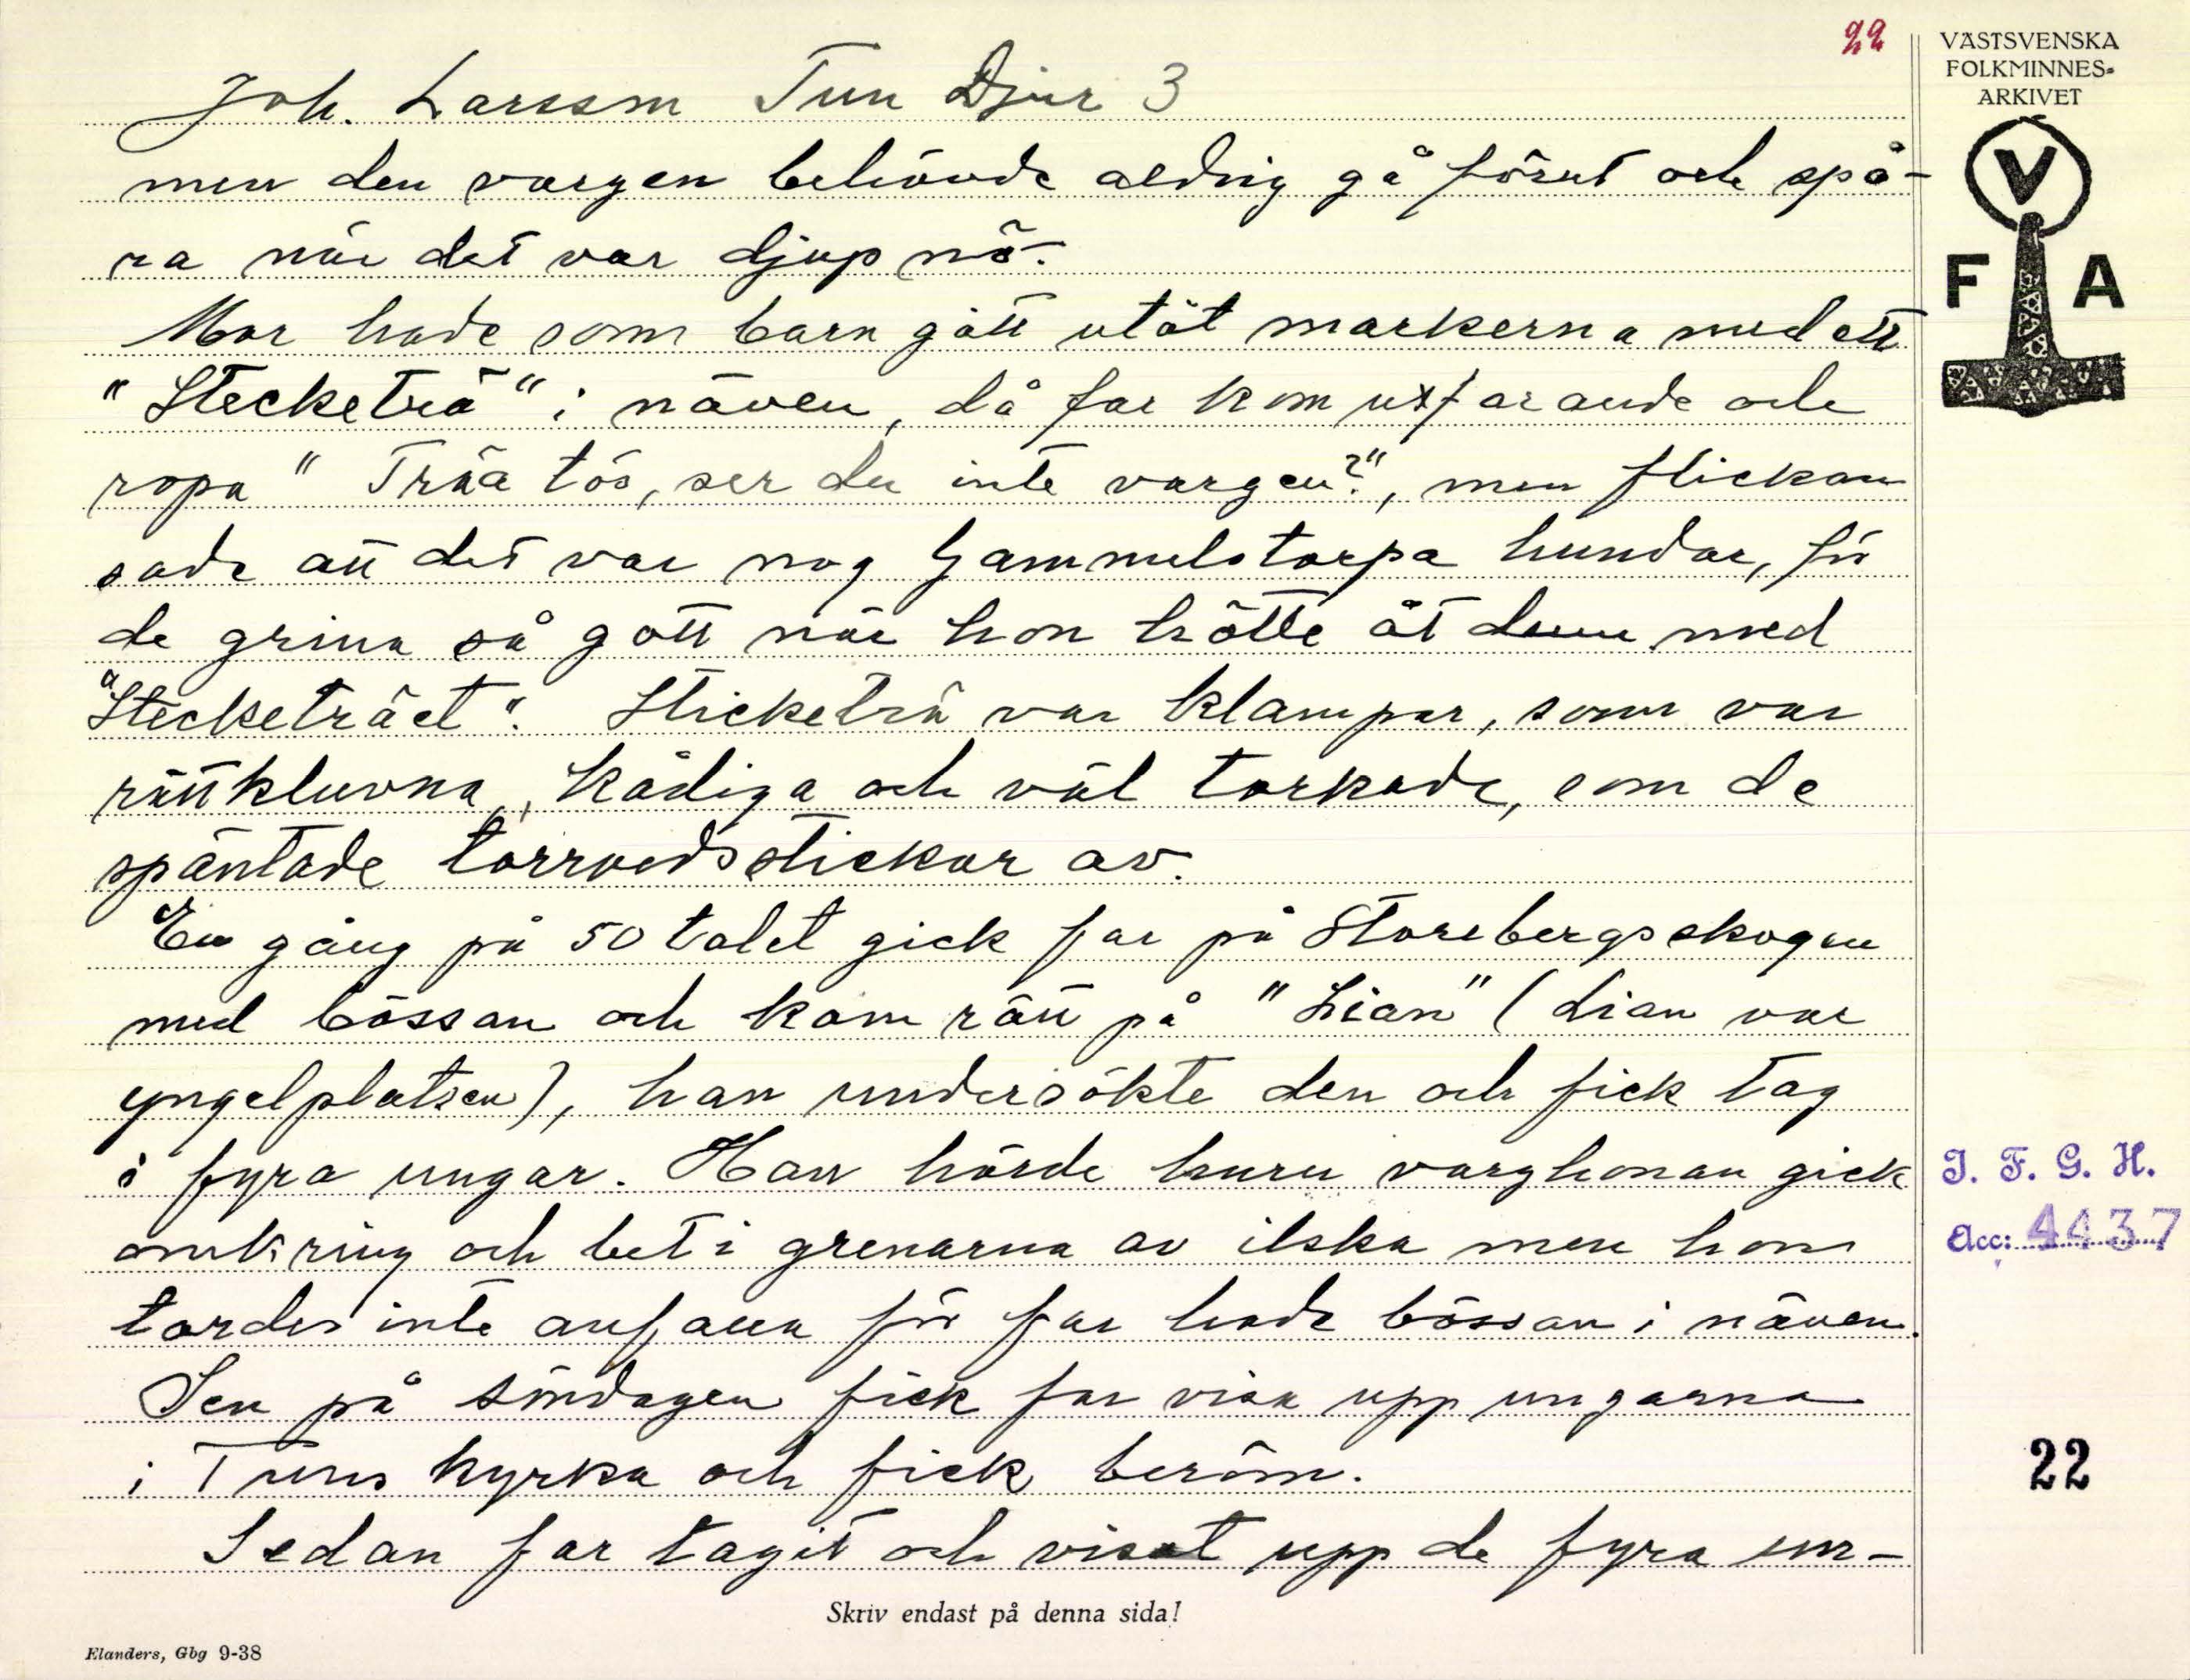 22
VÄSTSVENSKA
FOLKMINNES-
ARKIVET
V
F A
Joh. Larsson Tun Djur 3
men den vargen behövde aldrig gå först och spå-
ra när det var djup nö.
Mor hade som barn gått utåt markerna med ett
"Stecketrä" i näven, då far kom utfarande och
ropa "Träa tös, ser du inte vargen?", men flickan
sade att det var nog Gammelstorpa hundar, för
de grina så gott när hon hötte åt dem med
"Stecketräet". Sticketrä var klampar, som var
rättkluvna, kådiga och väl torkade, som de
späntade torrvedsstickor av.
En gång på 50 talet gick far på Storebergsskogen
med bössan och kom rätt på "Lian" (Lian var
yngelplatsen), han undersökte den och fick tag
i fyra ungar. Han hörde huru varghonan gick
omkring och bet i grenarna av ilska men hon
tordes inte anfalla för far hade bössan i näven.
Sen på söndagen fick far visa upp ungarna
i Tuns kyrka och fick beröm.
Sedan far tagit och visat upp de fyra un-
J. F. G. H.
Acc: 4437
22
Skriv endast på denna sida!
Elanders, Gbg 9-38